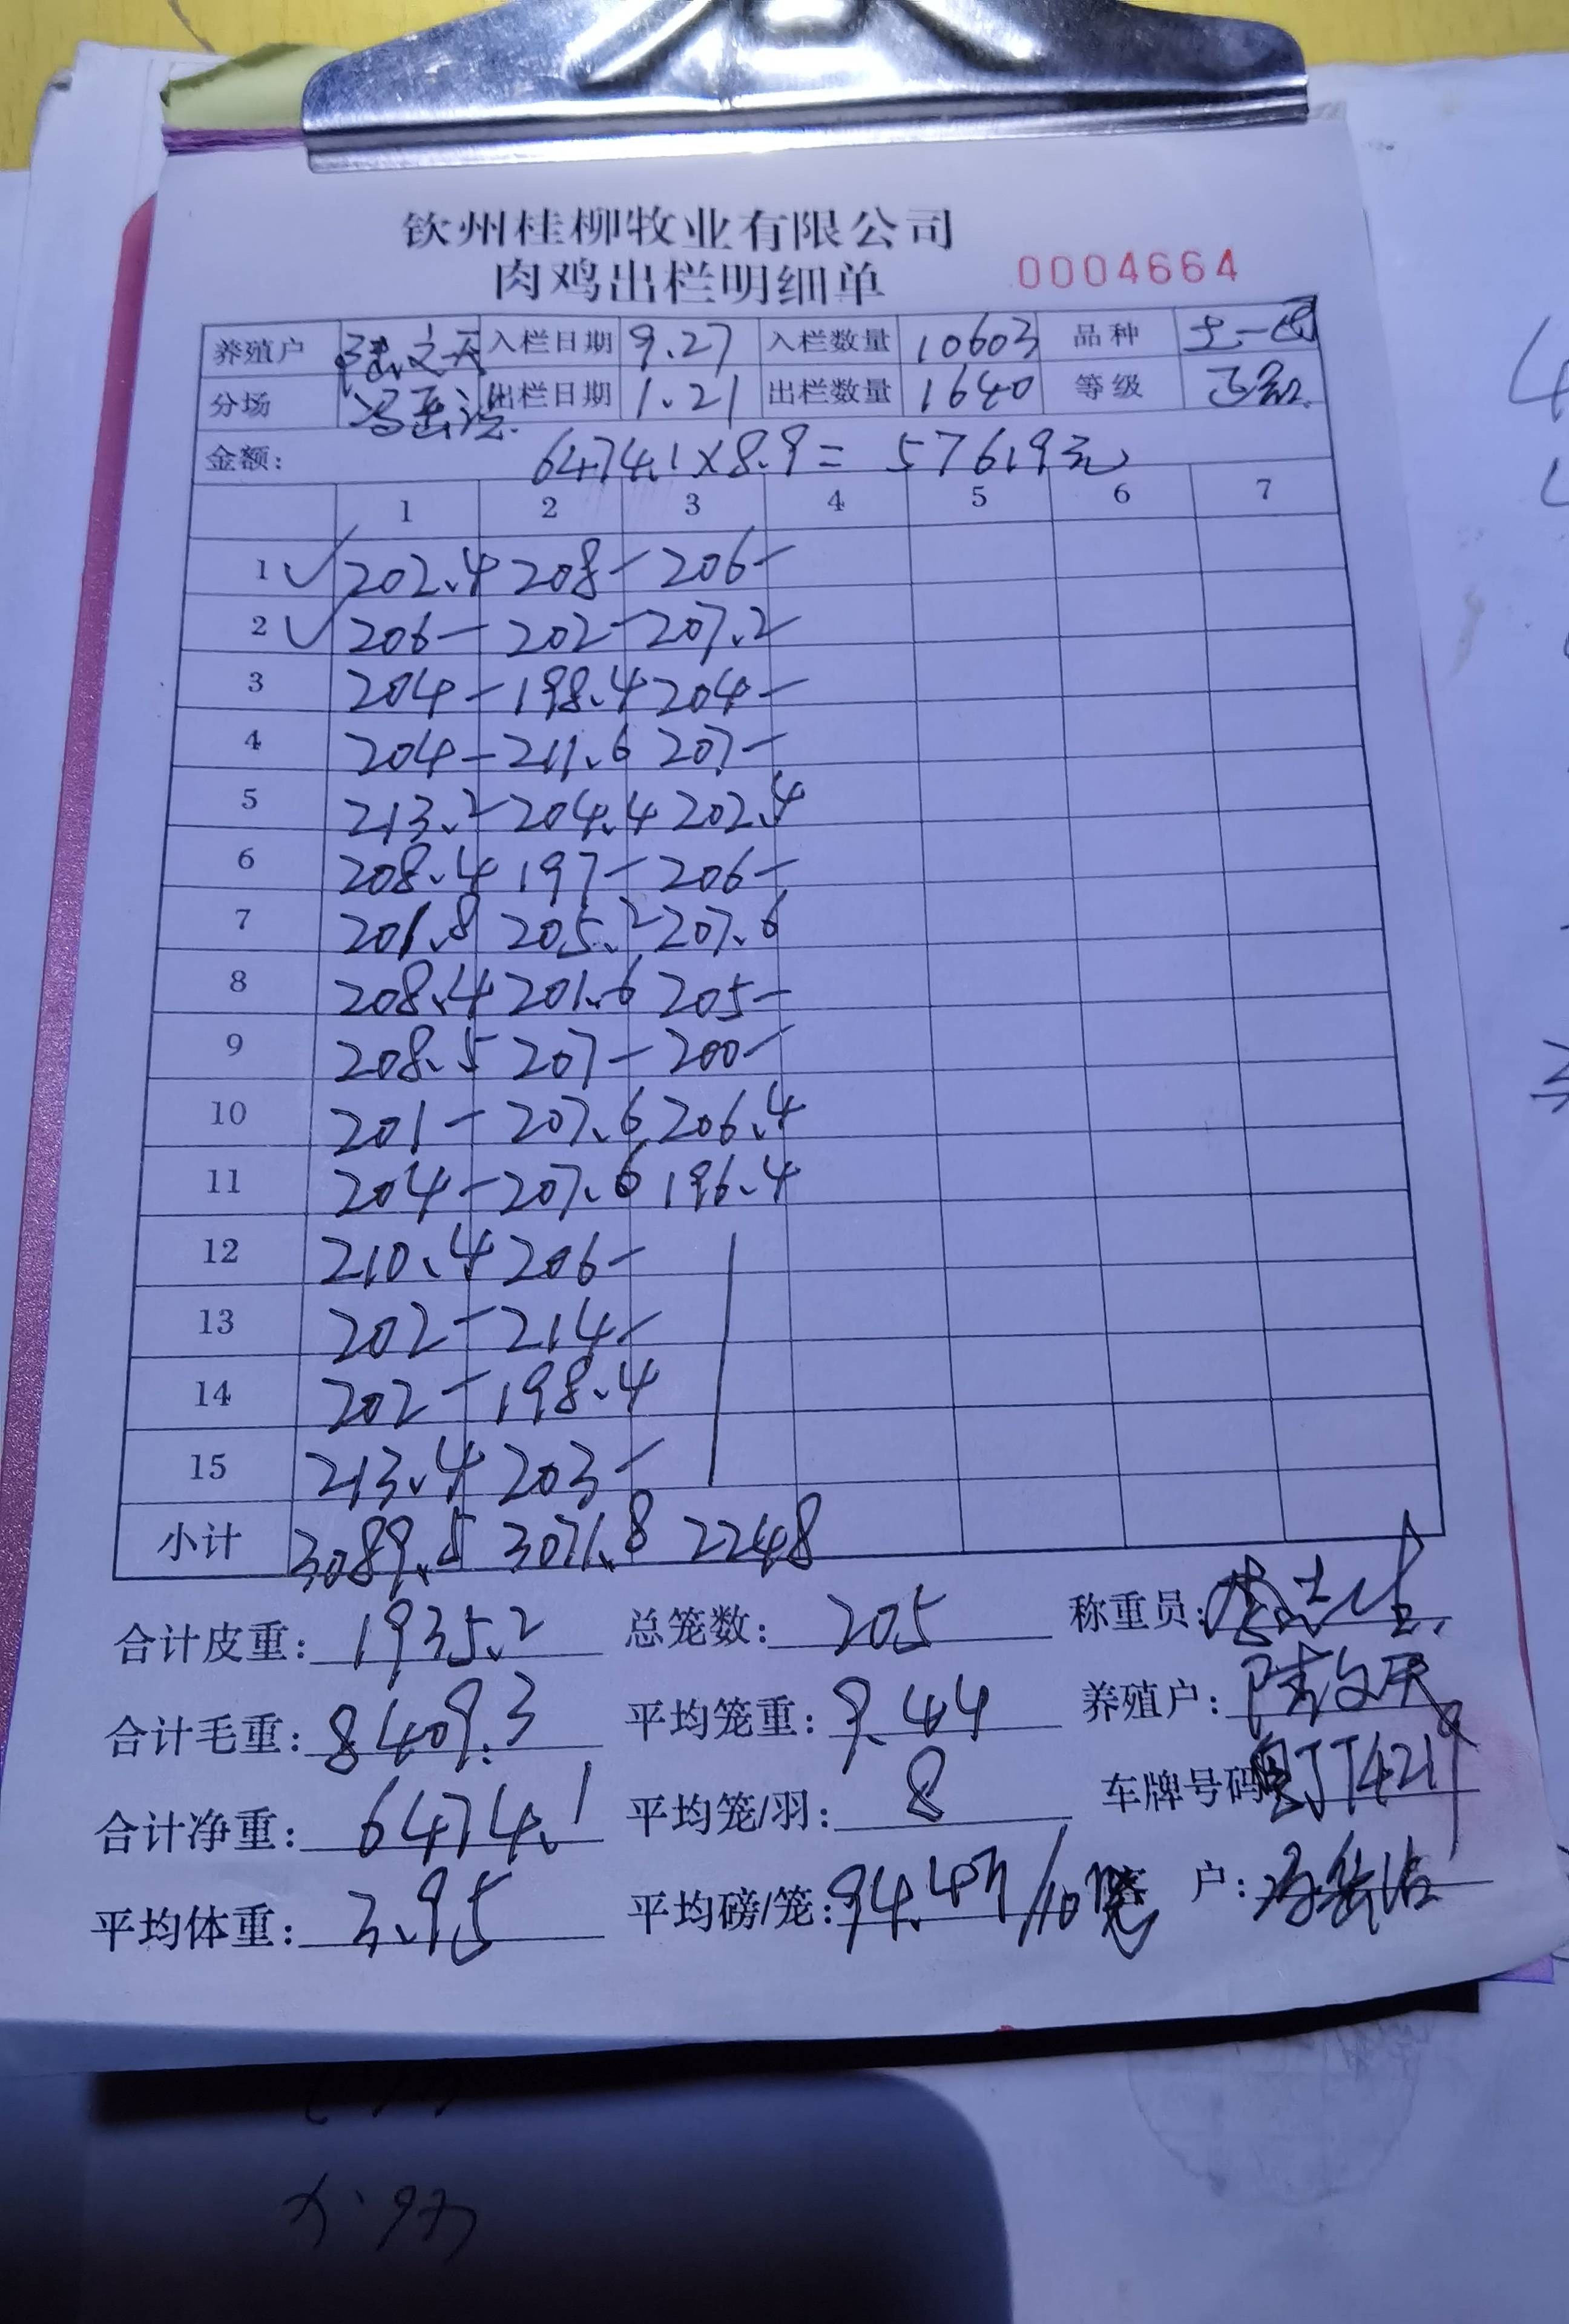 钦州桂柳牧业有限公司
肉鸡出栏明细单 0004664
养殖户 陆文天 入栏日期 9.27 入栏数量 10603 品种 土一
分场 出栏日期 1.21 出栏数量 1640 等级 正品
金额: 6474.1×8.9= 57619元
1 2 3 4 5 6 7
1 ✓ 202.4 208- 206-
2 ✓ 206- 202- 207.2
3 204- 198.4 204-
4 204- 211.6 207-
5 213.2 204.4 202.4
6 208.4 197- 206-
7 201.8 205.2 207.6
8 208.4 201.6 205-
9 208.5 207- 200-
10 201- 207.6 206.4
11 204- 207.6 196.4
12 210.4 206-
13 202- 214-
14 202- 198.4
15 213.4 203-
小计 3089.5 3071.8 2248
合计皮重: 1935.2 总笼数: 205 称重员:
合计毛重: 8409.3 平均笼重: 9.44 养殖户: 陆文天
合计净重: 6474.1 平均笼/羽: 8 车牌号码 粤JT4219
平均体重: 3.95 平均磅/笼: 94.4 /10笼 户: